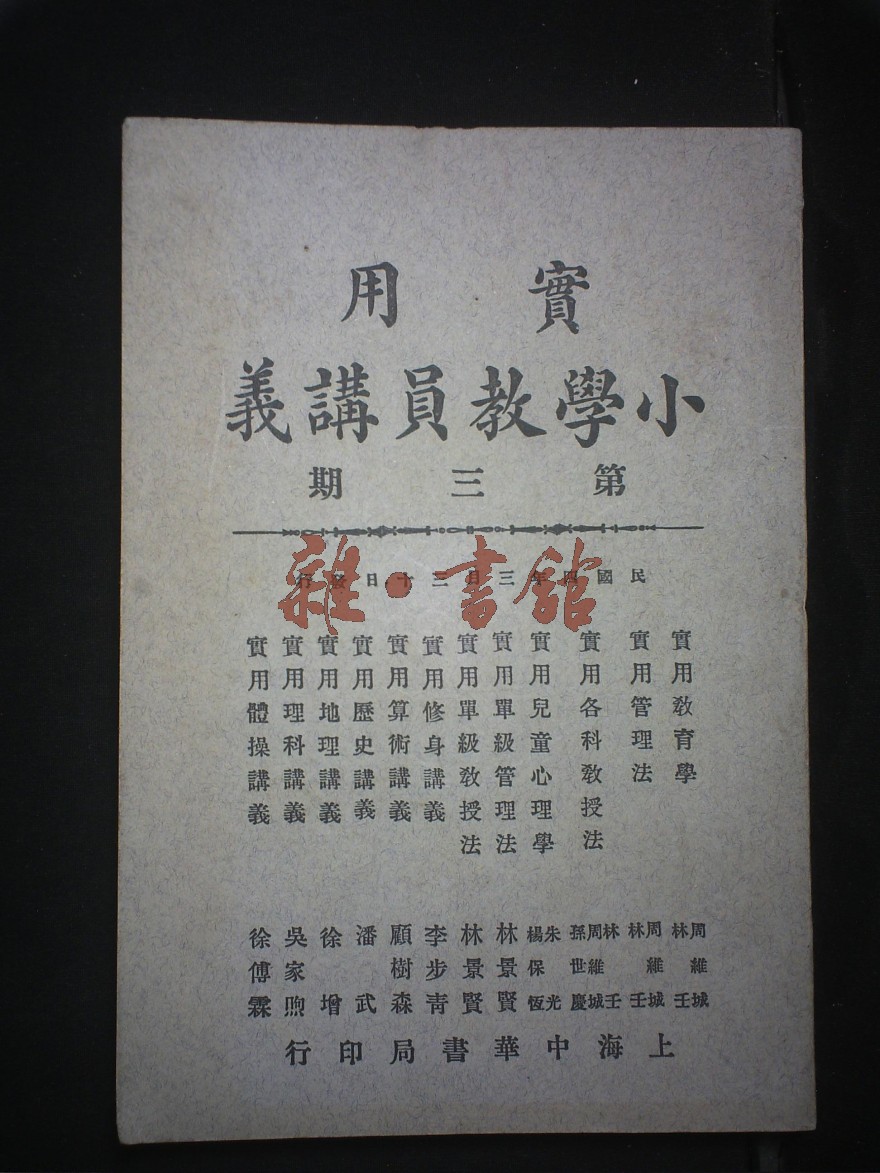 實用
小學教員講義
第三期
民國四年三月三十日發行
雜·書館
實用教育學 周維城 林壬
實用管理法 周維城 林壬
實用各科教授法 林壬 周維城 孫世慶
實用兒童心理學 朱光 楊保恆
實用單級管理法 林景賢
實用單級教授法 林景賢
實用修身講義 李步青
實用算術講義 顧樹森
實用歷史講義 潘武
實用地理講義 徐增
實用理科講義 吳家煦
實用體操講義 徐傅霖
上海中華書局印行